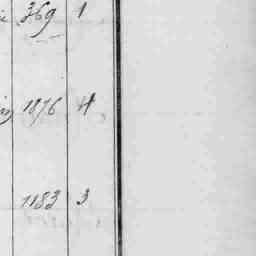 369 1
1876 4
1183 3